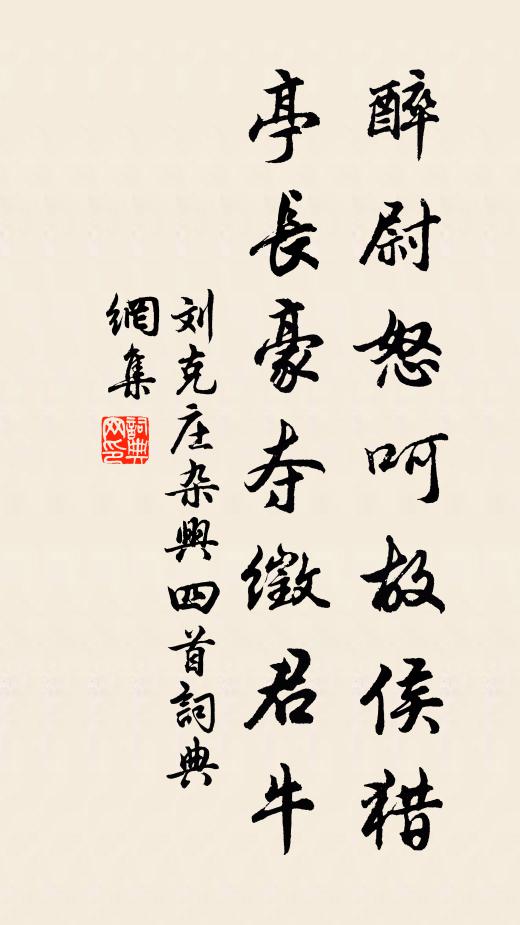 醉尉怒呵故侯猎
亭長豪夺徵君牛
刘克庄杂興四首詞典
網集
詞典
网印